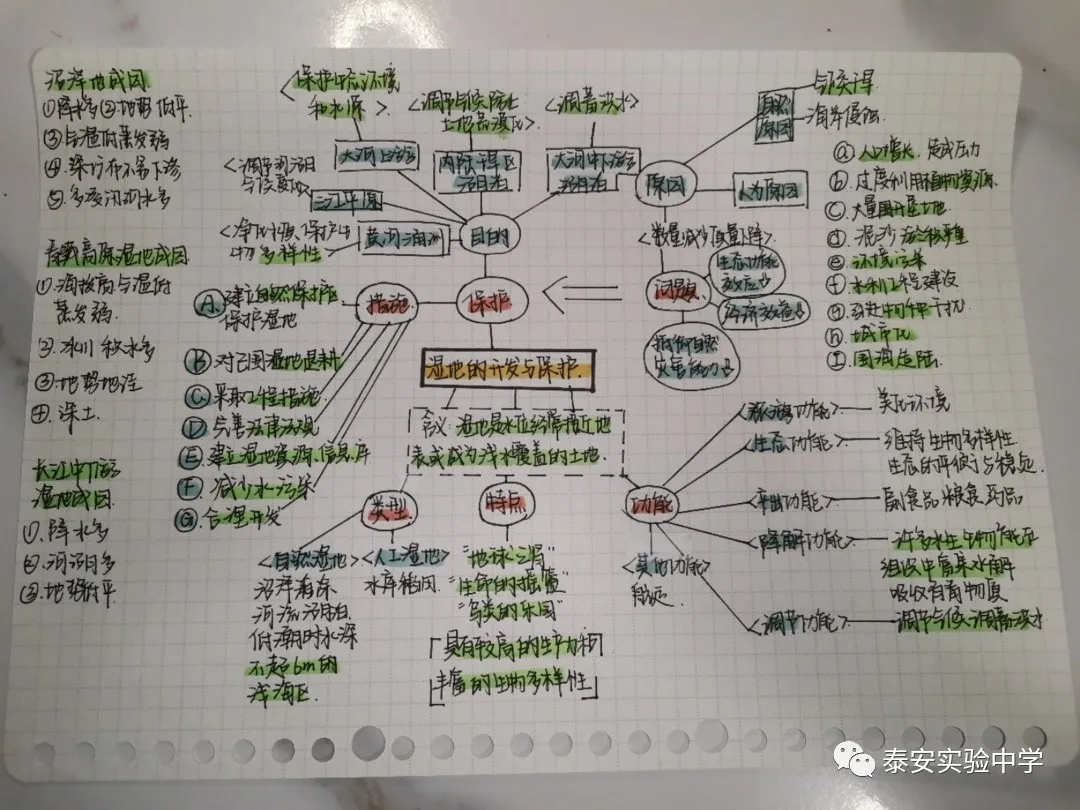 沼泽地成因
①降水多②地势低平
③气温低蒸发弱
④
⑤
青藏高原湿地成因
①海拔高气温低
蒸发弱
②冰川积水多
③地势地洼
④深土
长江中下游
湿地成因
①降水多
②河湖多
③地势低平
保护
和水源
大河上游
<调节气候防止
土地荒漠化>
内陆干旱区
湖泊
<调蓄洪水>
大河中下游
湖泊
三江平原
生物多样性>
目的
措施
保护
A.建立自然保护区
保护湿地
B 对已围湿地退耕
C 采取工程措施
D 完善法律法规
E 建立湿地资源信息库
F 减少水污染
G 合理开发
原因
自然
原因
气候干旱
海岸侵蚀
人为原因
ⓐ人口增长造成压力
ⓑ过度利用植物资源
ⓒ大量围开垦土地
ⓓ泥沙淤积严重
ⓔ环境污染
ⓕ水利工程建设
ⓗ城市化
ⓘ围湖造陆
<数量减少质量下降>
问题
生态功能
效应↓
经济效益↓
抵御自然
灾害能力↓
湿地的开发与保护
含义:湿地是水位经常接近地
表或成为浅水覆盖的土地.
类型
<自然湿地>
沼泽
河流湖泊
低潮时水深
不超6m的
浅海区.
<人工湿地>
水库稻田
特点
"地球之肾"
"生命的摇篮"
"鸟类的乐园"
具有较高的生产力和
丰富的生物多样性
功能
美化环境
<生态功能>
维持生物多样性
生态的平衡与稳定
副食品 粮食 药品
<降解功能>
许多水生生物能在
组织中富集
吸收有毒物质
<调节功能>
调节气候调蓄洪水
<其他功能>
泰安实验中学